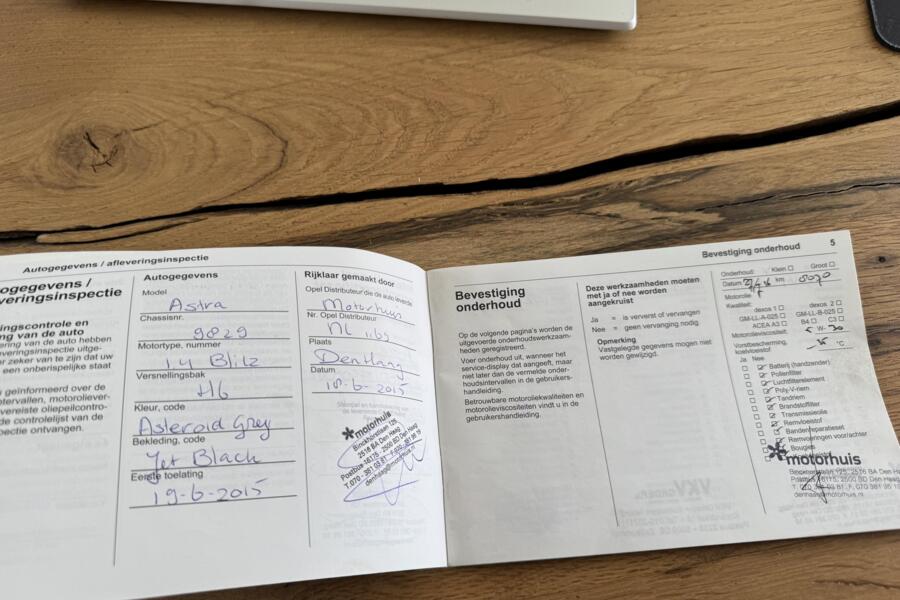 Autogegevens / afleveringsinspectie
ogegevens /
veringsinspectie
ingscontrole en
ng van de auto
ering van de auto hebben
inspectie uitge-
er zeker van te zijn dat uw
een onberispelijke staat
geïnformeerd over de
tervallen, motoroliever-
vereiste oliepeilcontro-
de controlelijst van de
pectie ontvangen.
Autogegevens
Model
Astra
Chassisnr.
9829
Motortype, nummer
1.4 Blitz
Versnellingsbak
H6
Kleur, code
Asteroid Grey
Bekleding, code
Jet Black
Eerste toelating
19-6-2015
Rijklaar gemaakt door
Opel Distributeur die de auto leverde
Motorhuis
Nr. Opel Distributeur
NL
Plaats
Den Haag
Datum
18-6-2015
motorhuis
Binckhorstlaan 125
2516 BA Den Haag
Postbus 16175, 2500 BD Den Haag
denhaag@motorhuis.nl
Bevestiging onderhoud
5
Bevestiging
onderhoud
Op de volgende pagina's worden de
uitgevoerde onderhoudswerkzaam-
heden geregistreerd.
Voer onderhoud uit, wanneer het
service-display dat aangeeft, maar
niet later dan de vermelde onder-
houdsintervallen in de gebruikers-
handleiding.
Betrouwbare motoroliekwaliteiten en
motorolieviscositeiten vindt u in de
gebruikershandleiding.
Deze werkzaamheden moeten
met ja of nee worden
aangekruist
Ja = is ververst of vervangen
Nee = geen vervanging nodig.
Opmerking
Vastgelegde gegevens mogen niet
worden gewijzigd.
Onderhoud: Klein Groot
Datum km
Motorolie
Kwaliteit: dexos 1 dexos 2
GM-LL-A-025 GM-LL-B-025
ACEA A3 B4 C3
Motorolieviscositeit: 5 W- 30
Vorstbescherming,
koelvloeistof °C
Ja Nee
Batterij (handzender)
Pollenfilter
Luchtfilterelement
Poly-V-riem
Tandriem
Brandstoffilter
Transmissieolie
Remvloeistof
Bandenreparatieset
Remvoeringen voor/achter
Bougies
motorhuis
Binckhorstlaan 125, 2516 BA Den Haag
Postbus 16175, 2500 BD Den Haag
denhaag@motorhuis.nl